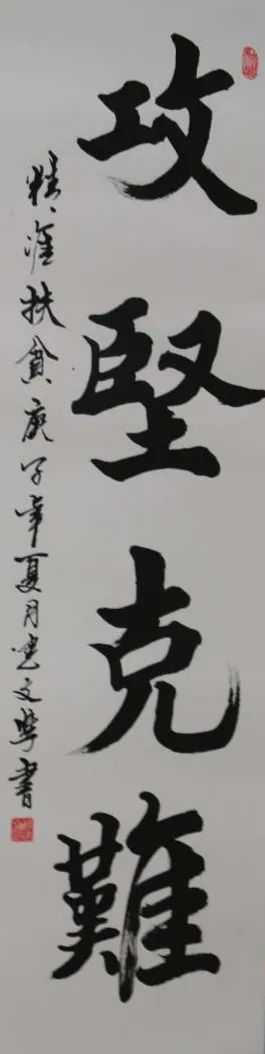 攻堅克難
精准扶貧庚子年夏月党文學書